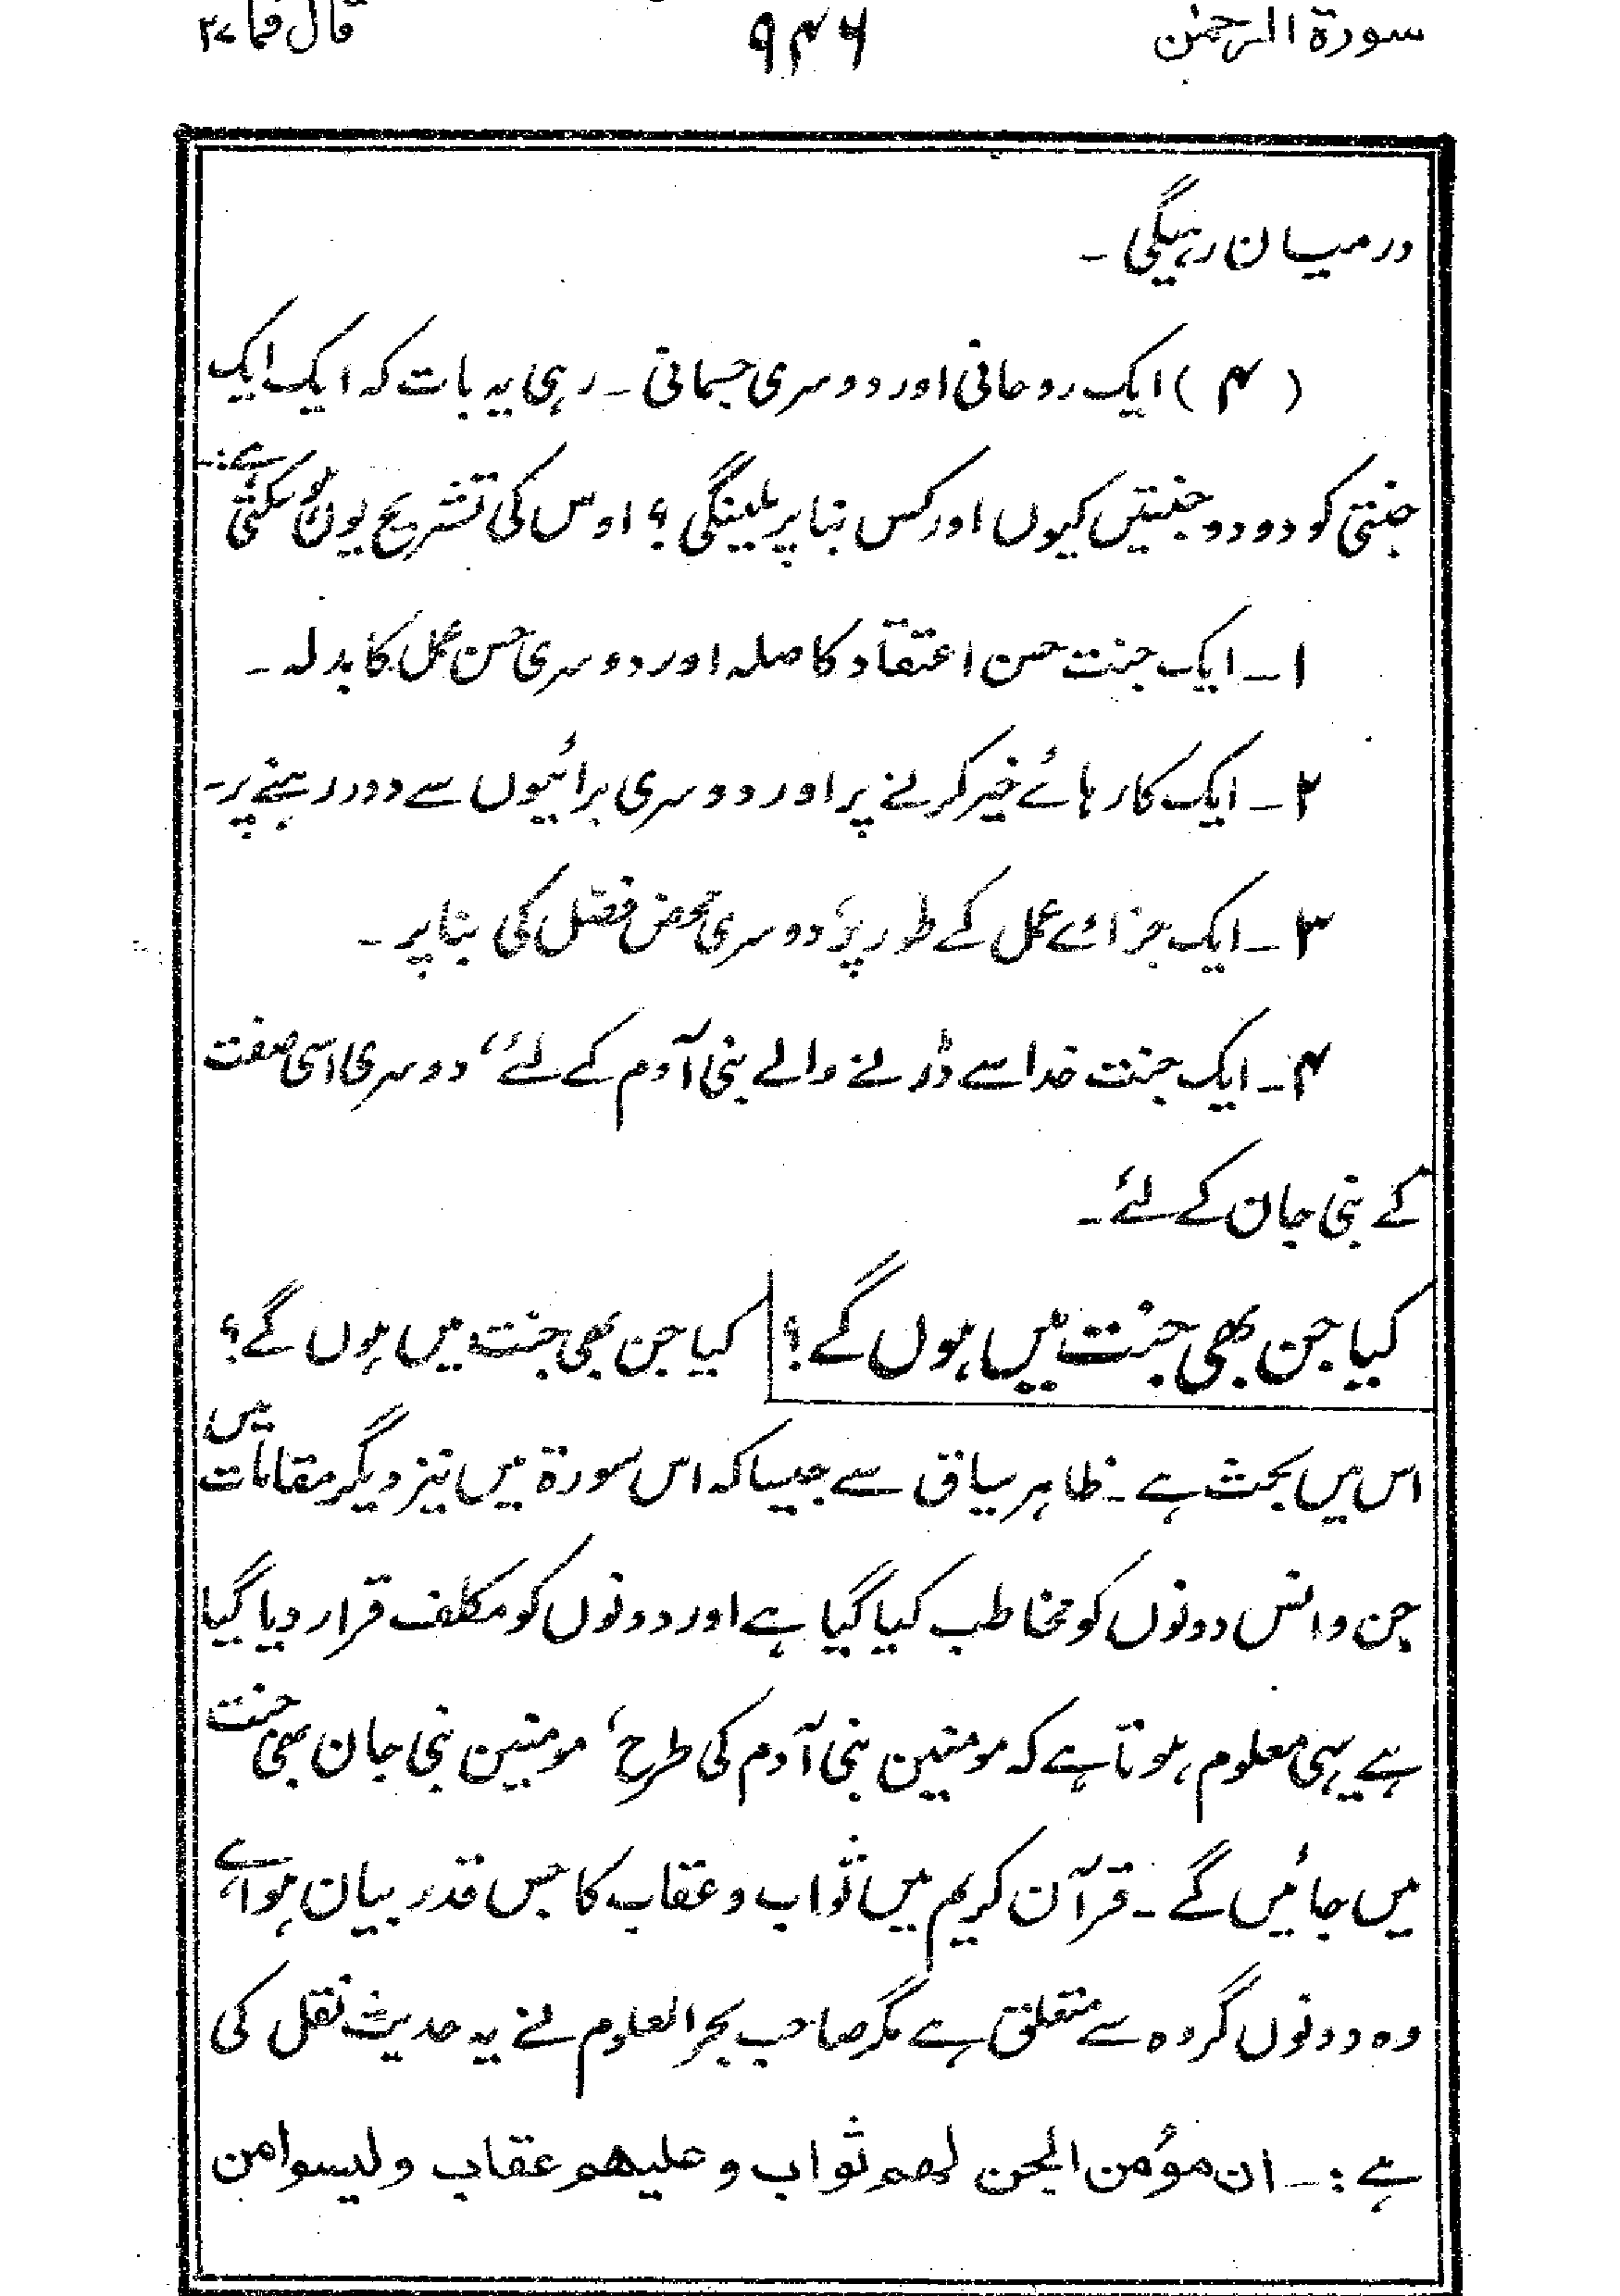 سورۃ الرحمٰن
۹۴۶
قال فما ۲۷
درمیان رہیگی ۔
( ۴ ) ایک روحانی اور دوسری جسمانی ۔ رہی یہ بات کہ ایک ایک
جنتی کو دو دو جنتیں کیوں اور کس بنا پر ملینگی ؟ اوس کی تشریح یوں ہو سکتی ہے :۔
۱ ۔ ایک جنت حسن اعتقاد کا صلہ اور دوسری حسن عمل کا بدلہ ۔
۲ ۔ ایک کارہائے خیر کرنے پر اور دوسری برائیوں سے دور رہنے پر۔
۳ ۔ ایک جزائے عمل کے طور پر، دوسری محض فضل کی بنا پر ۔
۴ ۔ ایک جنت خدا سے ڈرنے والے بنی آدم کے لئے، دوسری اسی صفت
کے بنی جان کے لئے ۔
کیا جن بھی جنت میں ہوں گے ؟ کیا جن بھی جنت میں ہوں گے ؟
اس میں بحث ہے ۔ ظاہر سیاق سے جیسا کہ اس سورۃ میں نیز دیگر مقامات میں
جن و انس دونوں کو مخاطب کیا گیا ہے اور دونوں کو مکلف قرار دیا گیا
ہے یہی معلوم ہوتا ہے کہ مومنین بنی آدم کی طرح، مومنین بنی جان بھی جنت
میں جائیں گے ۔ قرآن کریم میں ثواب و عقاب کا جس قدر بیان ہوا ہے
وہ دونوں گروہ سے متعلق ہے مگر صاحب بحر العلوم نے یہ حدیث نقل کی
ہے :۔ ان مؤمن الجن لهم ثواب و علیهم عقاب و لیسوا من